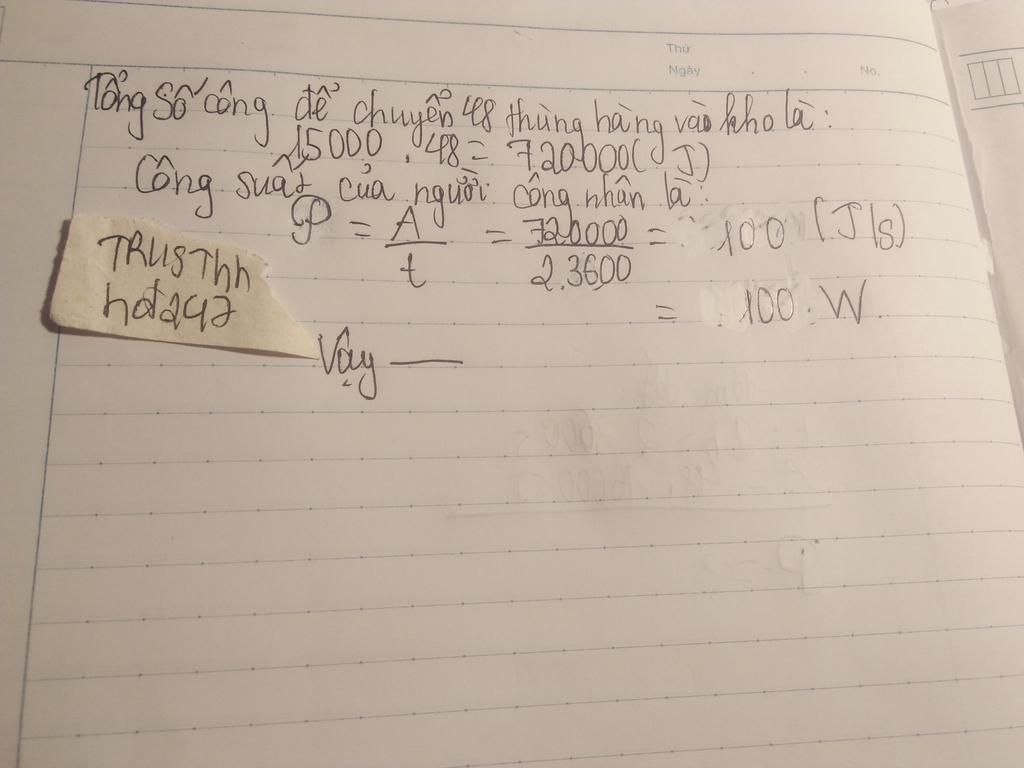 Thứ
Ngày . . No.
Tổng số công để chuyển 48 thùng hàng vào kho là:
15000 . 48 = 720000 (J)
Công suất của người công nhân là:
P = A/t = 720000/2.3600 = 100 (J/s)
= 100 W
TRUSThh
hơt247
Vậy —